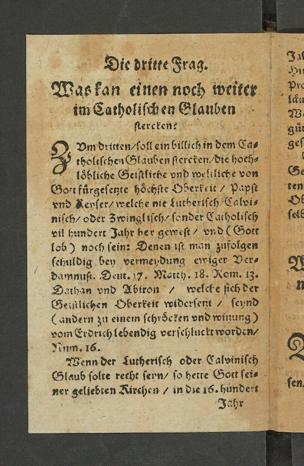 Die dritte Frag.
Was kan einen noch weiter
im Catholischen Glauben
stercken?
ZUm dritten / soll ein billich in dem Ca-
tholischen Glauben stercken / die hoch-
löbliche Geistliche vnd weltliche von
Gott fürgesetzte höchste Oberkeit / Papst
vnd Keyser / welche nie Lutherisch / Calvi-
nisch / oder Zwinglisch / sonder Catholisch
vil hundert Jahr her gewest / vnd (Gott
lob) noch sein: Denen ist man zufolgen
schuldig bey vermeydung ewiger Ver-
damnust. Deut. 17. Matth. 18. Rom. 13.
Dathan vnd Abiron / welche sich der
Geistlichen Oberkeit widersetzt / seynd
(andern zu einem schröcken vnd
vom Erdrich lebendig verschluckt worden /
Num. 16.
Wenn der Lutherisch oder Calvinisch
Glaub solte recht sein / so hette Gott sei-
ner geliebten Kirchen / in die 16. hundert
Jahr